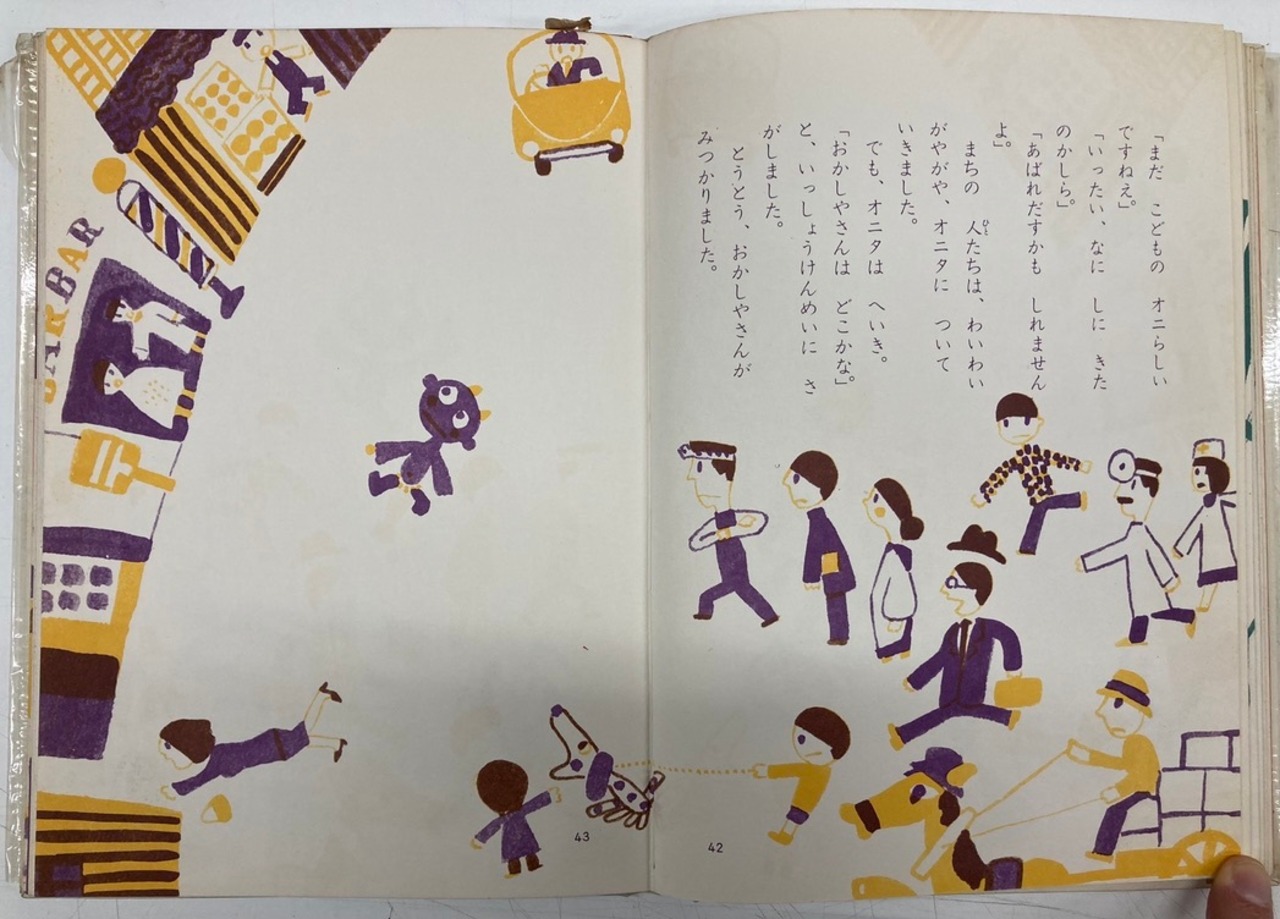 「まだ　こどもの　オニらしい
ですねえ」。
「いったい、なに　しに　きた
のかしら」。
「あばれだすかも　しれません
よ」。
　まちの　人たちは、わいわい
ひと
がやがや、オニタに　ついて
いきました。
　でも、オニタは　へいき。
「おかしやさんは　どこかな」。
と、いっしょうけんめいに　さ
がしました。
　とうとう、おかしやさんが
みつかりました。
42
BARBAR
43